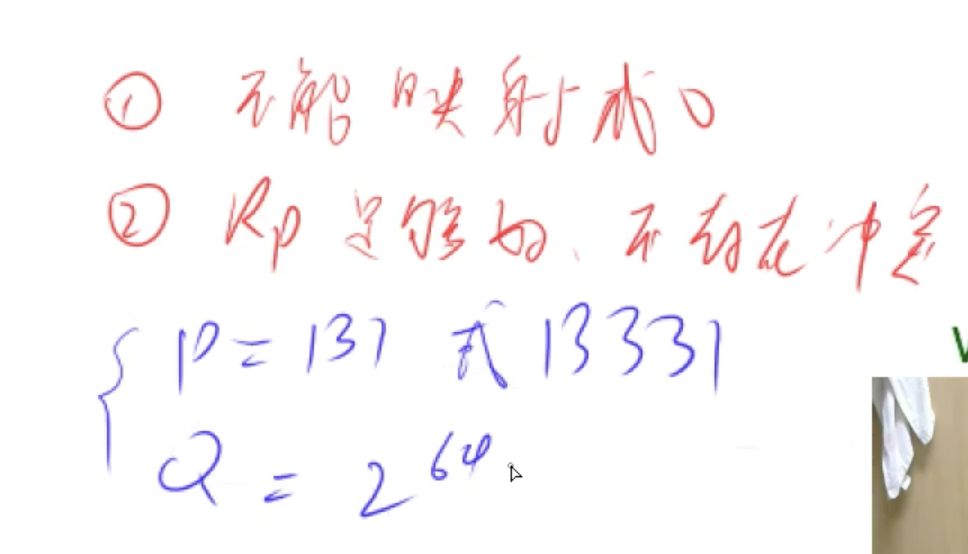 ① 不能映射成0
② Rp足够好、不存在冲突
P = 131 或 13331
Q = 2^64